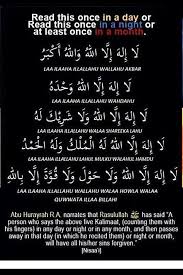 Read this once in a day or
Read this once in a night or
at least once in a month.
لَا إِلَهَ إِلَّا اللهُ وَاللهُ أَكْبَرُ
LAA ILAAHA ILLALLAHU WALLAHU AKBAR
لَا إِلَهَ إِلَّا اللهُ وَحْدَهُ
LAA ILAAHA ILLALLAHU WAHDAHU
لَا إِلَهَ إِلَّا اللهُ وَلَا شَرِيْكَ لَهُ
LAA ILAAHA ILLALLAHU WALAA SHAREEKA LAHU
لَا إِلَهَ إِلَّا اللهُ لَهُ الْمُلْكُ وَلَهُ الْحَمْدُ
LAA ILAAHA ILLALLAHU LAHUL MULKU WALAHUL HAMDU
لَا إِلَهَ إِلَّا اللهُ وَلَا حَوْلَ وَلَا قُوَّةَ إِلَّا بِاللهِ
LAA ILAAHA ILLALLAHU WALAA HOWLA WALAA
QUWWATA ILLAA BILLAHI
Abu Hurayrah R.A. narrates that Rasulullah ﷺ has said "A
person who says the above five Kalimaat, (counting them with
his fingers) in any day or night or in any month, and then passes
away in that day (in which he recited them) or night or month,
will have all his/her sins forgiven."
[Nisaa'i]